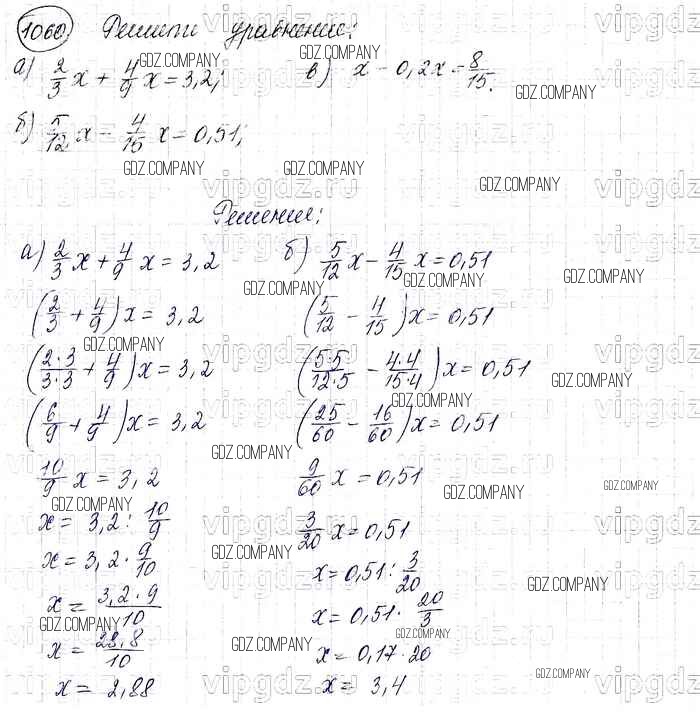 1060. Решити уравнение:
а) 2/3 x + 4/9 x = 3,2;
в) x - 0,2x = 8/15.
б) 5/12 x - 4/15 x = 0,51;
Решение:
а) 2/3 x + 4/9 x = 3,2
(2/3 + 4/9) x = 3,2
(2·3/3·3 + 4/9) x = 3,2
(6/9 + 4/9) x = 3,2
10/9 x = 3,2
x = 3,2 : 10/9
x = 3,2 · 9/10
x = 3,2·9/10
x = 28,8/10
x = 2,88
б) 5/12 x - 4/15 x = 0,51
(5/12 - 4/15) x = 0,51
(5·5/12·5 - 4·4/15·4) x = 0,51
(25/60 - 16/60) x = 0,51
9/60 x = 0,51
3/20 x = 0,51
x = 0,51 : 3/20
x = 0,51 · 20/3
x = 0,17·20
x = 3,4
vipgdz.ru
GDZ.COMPANY